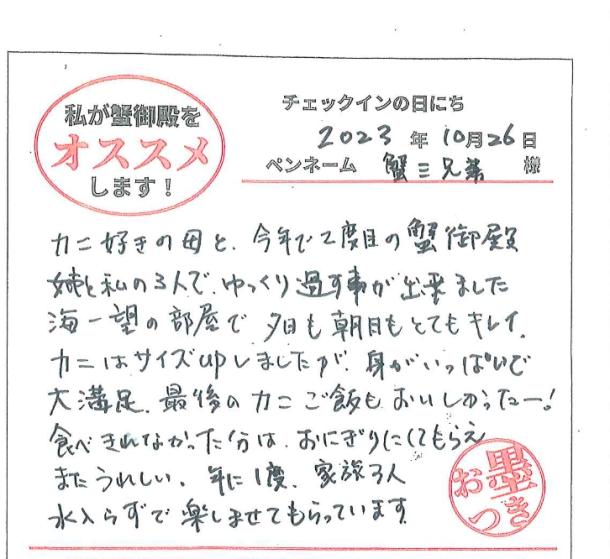 私が蟹御殿を
オススメ
します！
チェックインの日にち
2023年10月26日
ペンネーム 蟹三兄弟 様
カニ好きの母と、今年で2度目の蟹御殿
姉と私の3人で、ゆっくり過す事が出来ました
海一望の部屋で 夕日も朝日もとてもキレイ.
カニはサイズupしましたが、身がいっぱいで
大満足、最後のカニご飯もおいしかったー!
食べきれなかった分は、おにぎりにしてもらえ
またうれしい、年に1度、家族3人
水入らずで楽しませてもらっています
お墨つき